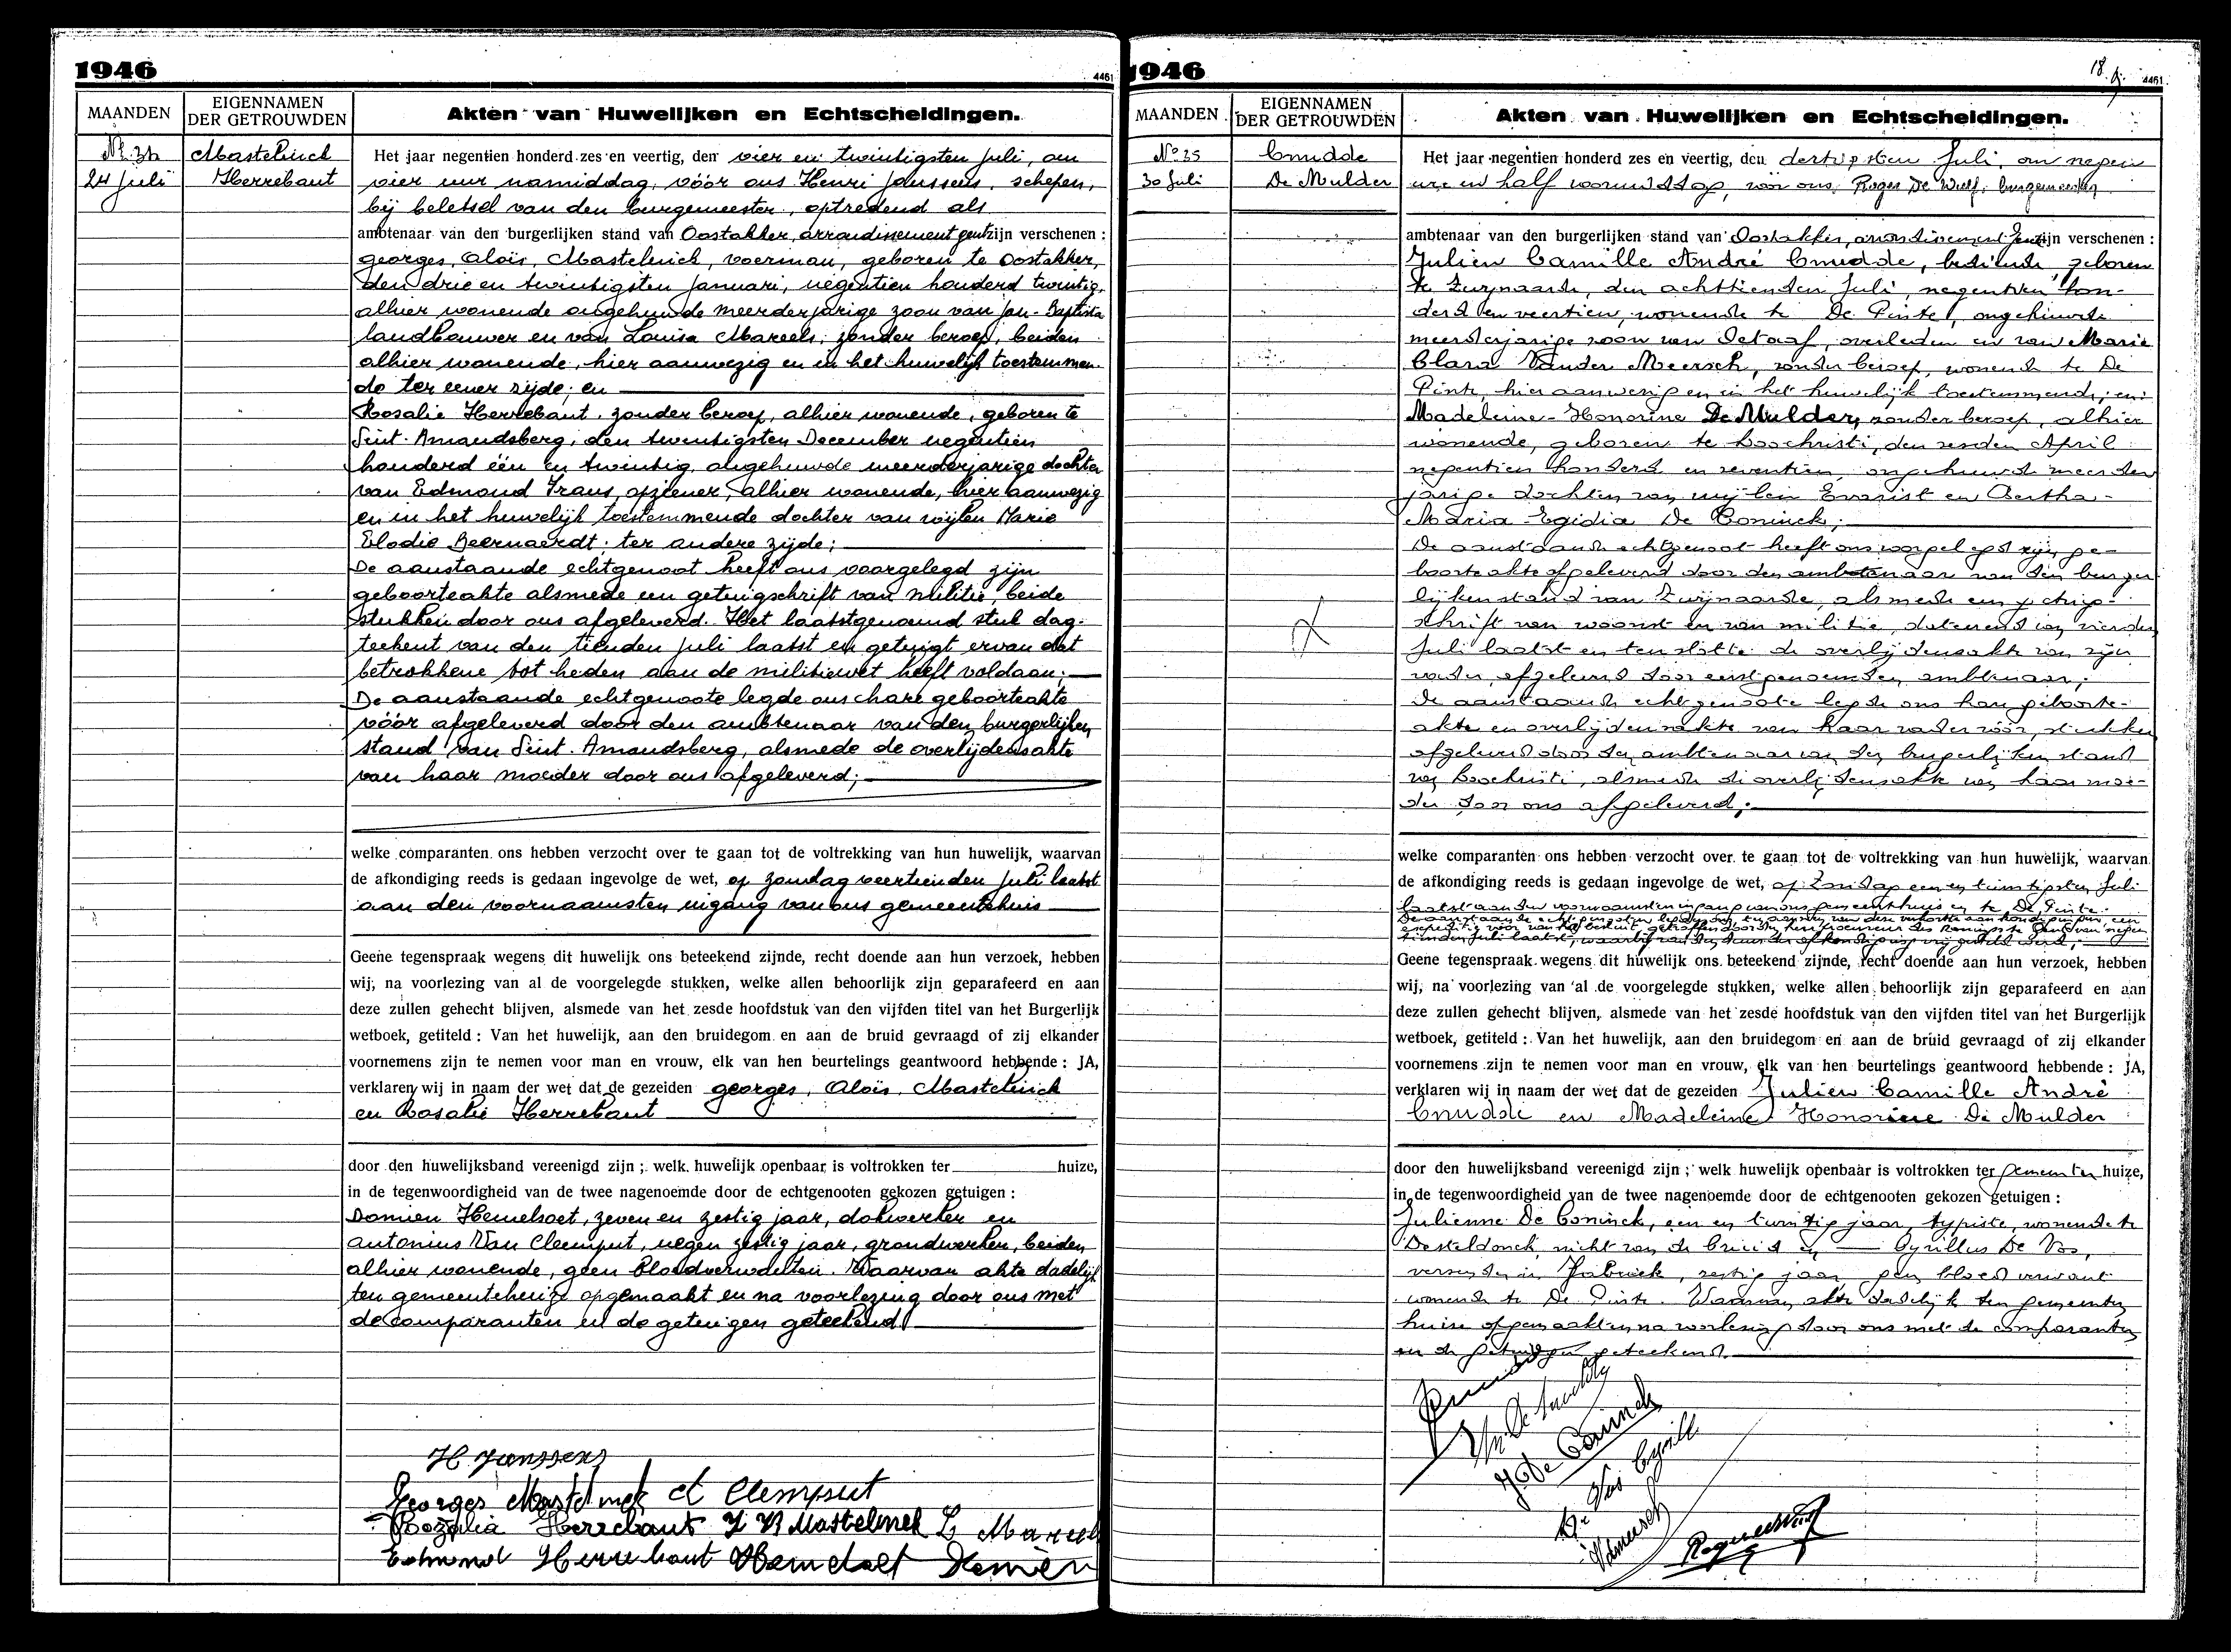 1946
4461
MAANDEN
EIGENNAMEN
DER GETROUWDEN
Akten van Huwelijken en Echtscheidingen.
Nr. 34
24 Juli
Mastelinck
Herrebaut
Het jaar negentien honderd zes en veertig, den vier en twintigsten Juli, om
vier uur namiddag, vóór ons Henri Janssens, schepen,
bij beletsel van den burgemeester, optredend als
ambtenaar van den burgerlijken stand van Oostakker, arrondissement gent zijn verschenen :
Georges, Aloïs, Mastelinck, voerman, geboren te Oostakker,
den drie en twintigsten Januari, negentien honderd twintig,
alhier wonende ongehuwde meerderjarige zoon van Jan-Baptista
landbouwer en van Louisa Mareels, zonder beroep, beiden
alhier wonende, hier aanwezig en in het huwelijk toestemmen-
de ter eener zijde; en
Rosalie Herrebaut, zonder beroep, alhier wonende, geboren te
Sint-Amandsberg, den twintigsten December negentien
honderd één en twintig, ongehuwde meerderjarige dochter
van Edmond Frans, opziener, alhier wonende, hier aanwezig
en in het huwelijk toestemmende dochter van wijlen Marie
Elodie Beernaerdt; ter andere zijde;
De aanstaande echtgenoot heeft ons voorgelegd zijn
geboorteakte alsmede een getuigschrift van militie, beide
stukken door ons afgeleverd. Het laatstgenoemd stuk dag-
teekent van den tienden Juli laatst en getuigt ervan dat
betrokkene tot heden aan de militiewet heeft voldaan;
De aanstaande echtgenoote legde ons hare geboorteakte
vóór afgeleverd door den ambtenaar van den burgerlijken
stand van Sint-Amandsberg, alsmede de overlijdensakte
van haar moeder door ons afgeleverd;
welke comparanten ons hebben verzocht over te gaan tot de voltrekking van hun huwelijk, waarvan
de afkondiging reeds is gedaan ingevolge de wet, op zondag veertienden Juli laatst
aan den voornaamsten ingang van ons gemeentehuis
Geene tegenspraak wegens dit huwelijk ons beteekend zijnde, recht doende aan hun verzoek, hebben
wij, na voorlezing van al de voorgelegde stukken, welke allen behoorlijk zijn geparafeerd en aan
deze zullen gehecht blijven, alsmede van het zesde hoofdstuk van den vijfden titel van het Burgerlijk
wetboek, getiteld : Van het huwelijk, aan den bruidegom en aan de bruid gevraagd of zij elkander
voornemens zijn te nemen voor man en vrouw, elk van hen beurtelings geantwoord hebbende : JA,
verklaren wij in naam der wet dat de gezeiden Georges, Aloïs, Mastelinck
en Rosalie Herrebaut
door den huwelijksband vereenigd zijn ; welk huwelijk openbaar is voltrokken ter huize,
in de tegenwoordigheid van de twee nagenoemde door de echtgenooten gekozen getuigen :
Damien Hemelsoet, zeven en zestig jaar, dokwerker en
Antonius Van Cleemput, negen zestig jaar, grondwerker, beiden
alhier wonende, geen bloedverwanten. Waarvan akte dadelijk
ten gemeentehuize opgemaakt en na voorlezing door ons met
de comparanten en de getuigen geteekend
H. Janssens
Georges Mastelinck Cleemput
Rozalia Herrebaut J B Mastelinck L Mareels
Edmond Herrebaut
1946
18.
4461
MAANDEN
EIGENNAMEN
DER GETROUWDEN
Akten van Huwelijken en Echtscheidingen.
No 35
30 Juli
Cnudde
De Mulder
Het jaar negentien honderd zes en veertig, den dertigsten Juli, om negen
ure en half voormiddag, vóór ons, Roger De Wulf, burgemeester
ambtenaar van den burgerlijken stand van Oostakker, arrondissement Gent zijn verschenen :
Julien Camille André Cnudde, bediende, geboren
te Zwijnaarde, den achttienden Juli, negentien hon-
derd en veertien, wonende te De Pinte, ongehuwde
meerderjarige zoon van Octaaf, overleden en van Marie
Clara Vander Meersch, zonder beroep, wonende te De
Pinte, hier aanwezig en in het huwelijk toestemmende; en
Madeleine-Honorine De Mulder, zonder beroep, alhier
wonende, geboren te Loochristi, den zesden April
negentien honderd en zeventien, ongehuwde meerder
jarige dochter van wijlen Evarist en Bertha-
Maria-Egidia De Coninck;
De aanstaande echtgenoot heeft ons voorgelegd zijn ge-
boorteakte afgeleverd door den ambtenaar van den burger
lijken stand van Zwijnaarde, alsmede een getuig-
schrift van woonst en van militie, daterend van vierden
Juli laatst en tenslotte de overlijdensakte van zijn
vader, afgeleverd door eerstgenoemden ambtenaar;
De aanstaande echtgenoote legde ons haar geboorte-
akte en overlijdensakte van haar vader vóór, stukken
afgeleverd door den ambtenaar van den burgerlijken stand
van Loochristi, alsmede de overlijdensakte van haar moe-
der door ons afgeleverd;
welke comparanten ons hebben verzocht over te gaan tot de voltrekking van hun huwelijk, waarvan
de afkondiging reeds is gedaan ingevolge de wet, op Zondag een en twintigsten Juli
laatst aan den voornaamsten ingang van ons gemeentehuis en te De Pinte.
Geene tegenspraak wegens dit huwelijk ons beteekend zijnde, recht doende aan hun verzoek, hebben
wij, na voorlezing van al de voorgelegde stukken, welke allen behoorlijk zijn geparafeerd en aan
deze zullen gehecht blijven, alsmede van het zesde hoofdstuk van den vijfden titel van het Burgerlijk
wetboek, getiteld : Van het huwelijk, aan den bruidegom en aan de bruid gevraagd of zij elkander
voornemens zijn te nemen voor man en vrouw, elk van hen beurtelings geantwoord hebbende : JA,
verklaren wij in naam der wet dat de gezeiden Julien Camille André
Cnudde en Madeleine Honorine De Mulder
door den huwelijksband vereenigd zijn ; welk huwelijk openbaar is voltrokken ter gemeenten huize,
in de tegenwoordigheid van de twee nagenoemde door de echtgenooten gekozen getuigen :
Julienne De Coninck, een en twintig jaar, typiste, wonende te
Desteldonck, nicht van de bruid en Cyrillus De Vos,
zestig jaar, geen bloedverwant
wonende te De Pinte. Waarvan akte dadelijk ten gemeenten
huize opgemaakt en na voorlezing door ons met de comparanten
en de getuigen geteekend.
J. De Coninck
De Vos Cyrille